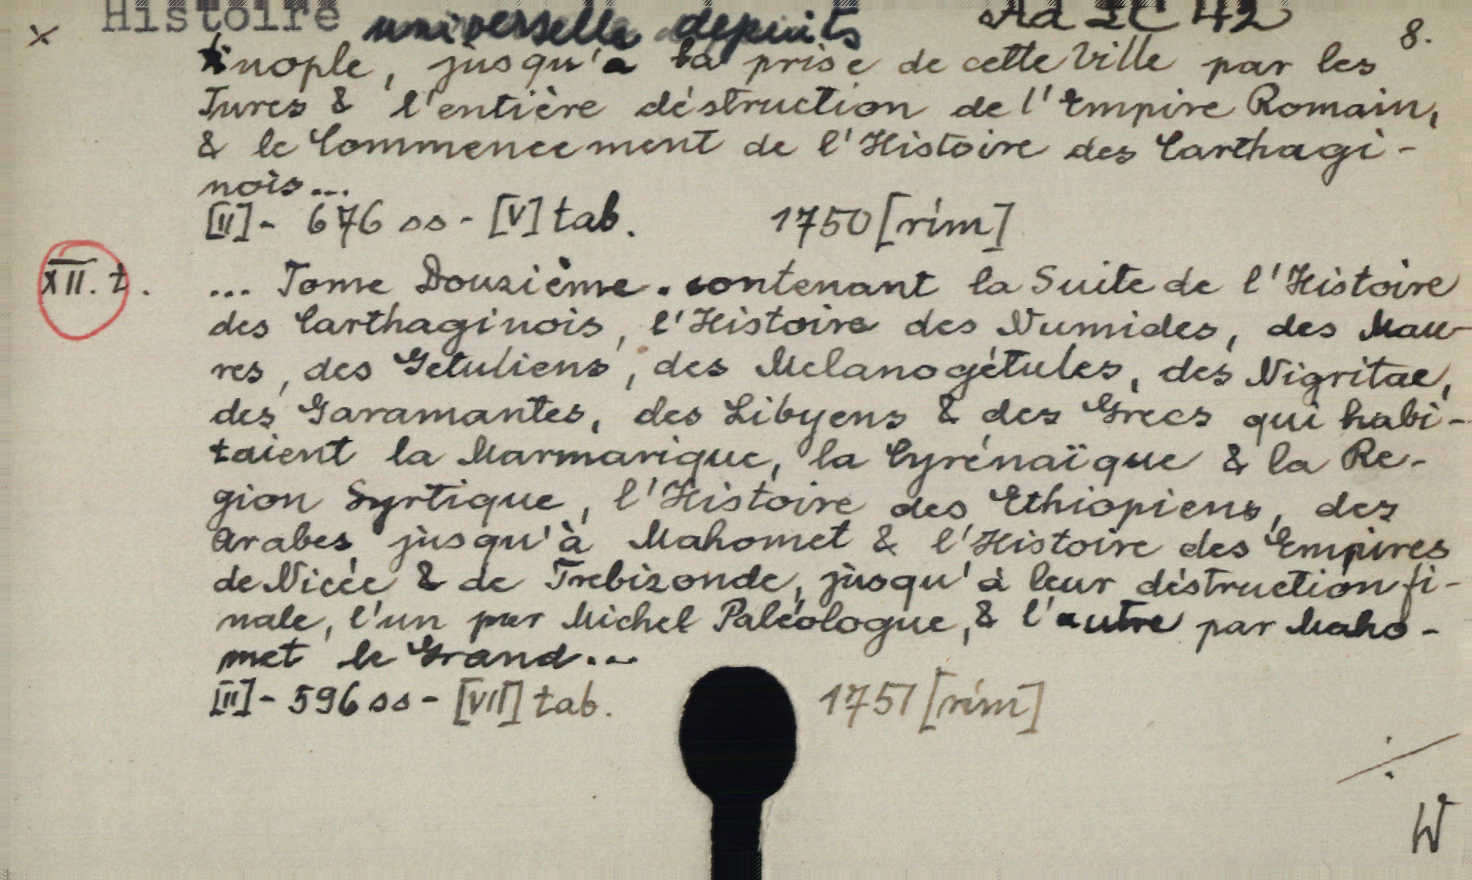 × Histoire universelle depuits Ad IC 42 8.
tinople, jusqu'a la prise de cette Ville par les
Turcs & l'entière déstruction de l'Empire Romain,
& le Commencement de l'Histoire des Carthagi-
nois...
[II]- 676 ss - [V] tab. 1750 [rím]
XII. t. ... Tome Douzième. contenant la Suite de l'Histoire
des Carthaginois, l'Histoire des Numides, des Mau-
res, des Getuliens, des Melanogétules, des Nigritae,
des Garamantes, des Libyens & des Grecs qui habi-
taient la Marmarique, la Cyrénaïque & la Re-
gion Syrtique, l'Histoire des Ethiopiens, des
Arabes jusqu'à Mahomet & l'Histoire des Empires
de Nicée & de Trebizonde, jusqu'à leur déstruction fi-
nale, l'un par Michel Paléologue, & l'autre par Maho-
met le Grand...
[II]- 596 ss - [VII] tab. 1751 [rím]
./.
W